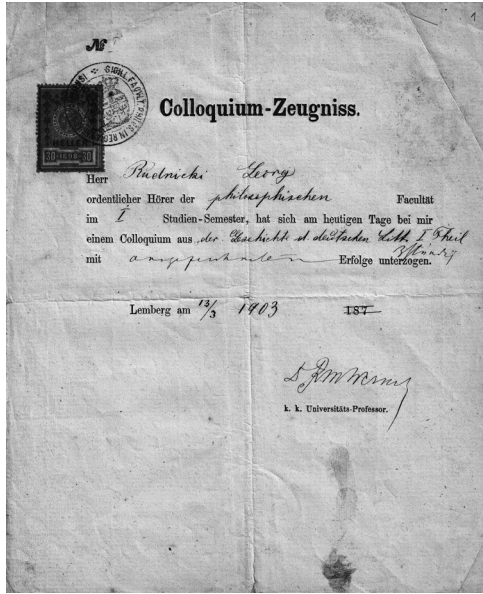 1
№
SIGILL. FACULT. PHILOS. IN REG
30 1898 30
HELLER
Colloquium-Zeugniss.
Herr Rudnicki Georg
ordentlicher Hörer der philosophischen Facultät
im I Studien-Semester, hat sich am heutigen Tage bei mir
einem Colloquium aus der Geschichte d deutschen Litt. I Theil
3stündig
mit Erfolge unterzogen.
Lemberg am 13/3 1903 187
k. k. Universitäts-Professor.